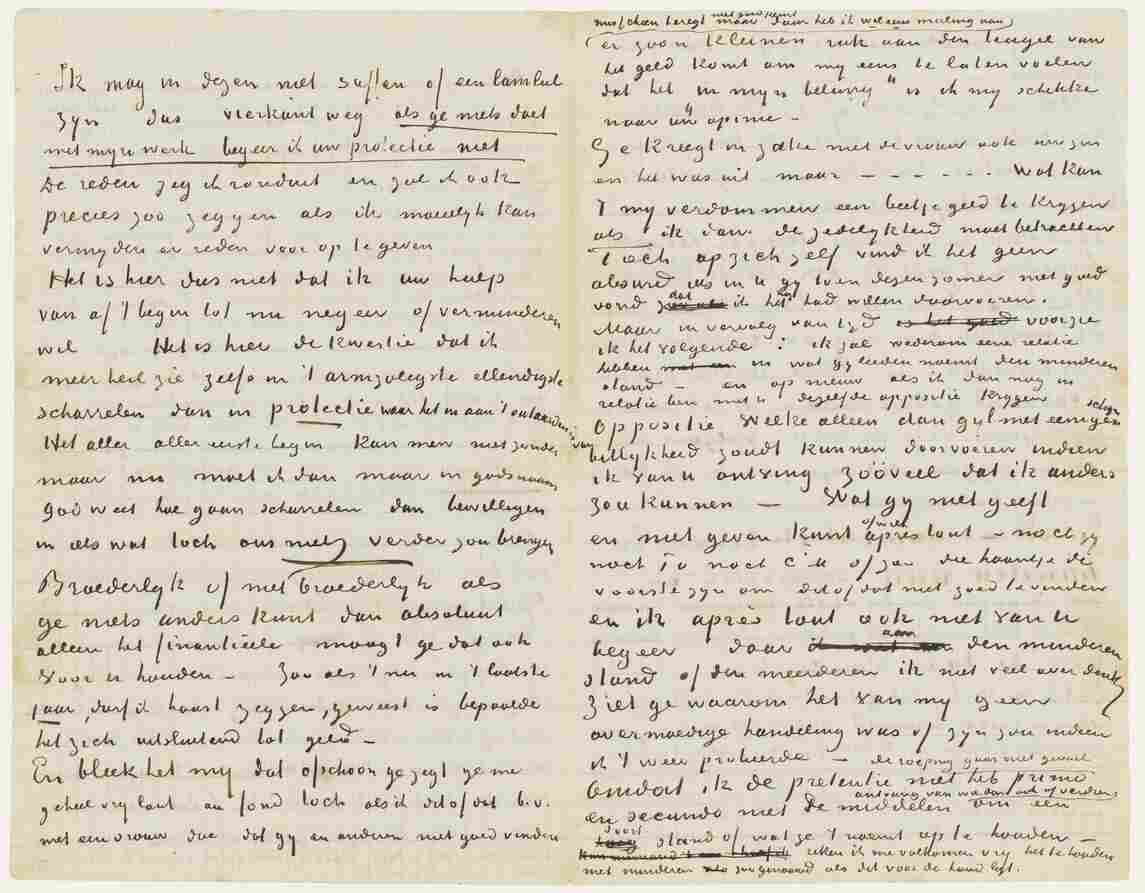 Ik mag in dezen niet suffen of een lamlul
zyn dus vierkant weg als ge niets doet
met myn werk begeer ik uw protectie niet
De reden zeg ik ronduit en zal ik ook
precies zoo zeggen als ik moeielyk kan
vermyden er reden voor op te geven
Het is hier dus niet dat ik uw hulp
van af 't begin tot nu negeer of verminderen
wil Het is hier de kwestie dat ik
meer heil zie zelfs in 't armzaligste ellendigste
scharrelen dan in protectie waar het in aan 't ontaarden is
Het aller aller eerste begin kan men niet zonder
maar nu moet ik dan maar in godsnaam
God weet hoe gaan scharrelen dan bewilligen
in iets wat toch ons niet verder zou brengen
Broederlyk of niet broederlyk als
ge niets anders kunt dan absoluut
alleen het financieele moogt ge dat ook
voor u houden – Zoo als 't nu in 't laatste
jaar, durf ik haast zeggen, geweest is bepaalde
het zich uitsluitend tot geld –
En bleek het my dat ofschoon ge zegt ge me
geheel vry laat au fond toch als ik dit of dat b.v.
met een vrouw doe dat gy en anderen niet goed vinden
misschien teregt niet goed vindt maar daar heb ik wel eens maling aan
er zoon kleinen ruk aan den teugel van
het geld komt om my eens te laten voelen
dat het in myn belang "is ik my schikke
naar uw opinie –
Ge kreegt in zake met de vrouw ook uw zin
en het was uit maar – – – – – – Wat kan
't my verdommen een beetje geld te krygen
als ik dan de zedelykheid moet betrachten
Toch op zich zelf vind ik het geen
absurd iets in u gy toen dezen zomer niet goed
vond dat ik het had willen doorvoeren.
Maar in vervolg van tyd voorzie
ik het volgende : ik zal wederom eene relatie
hebben in wat gy lieden noemt den minderen
stand – en op nieuw als ik dan nog in
relatie ben met u dezelfde oppositie krygen
Oppositie Welke alleen dan gyl. met eenigen schyn van
billykheid zoudt kunnen doorvoeren indien
ik van u ontving zóóveel dat ik anders
zou kunnen – Wat gy niet geeft
en niet geven kunt of wilt après tout – noch gy
noch Pa noch C M of zoo die haantje de
voorste zyn om dit of dat niet goed te vinden
en ik après tout ook niet van u
begeer daar ik aan den minderen
stand of den meerderen ik niet veel over denk
Ziet ge waarom het van my geen
overmoedige handeling was of zyn zou indien
ik 't weer probeerde –
Omdat ik de pretentie niet heb primo de roeping gaar niet gevoel
en secundo niet de middelen ontvang van wie dan ook of verdien om een
soort stand of wat ge 't noemt op te houden –
reken ik me volkomen vry het te houden
met minderen zoo genaamd als dit voor de hand ligt.